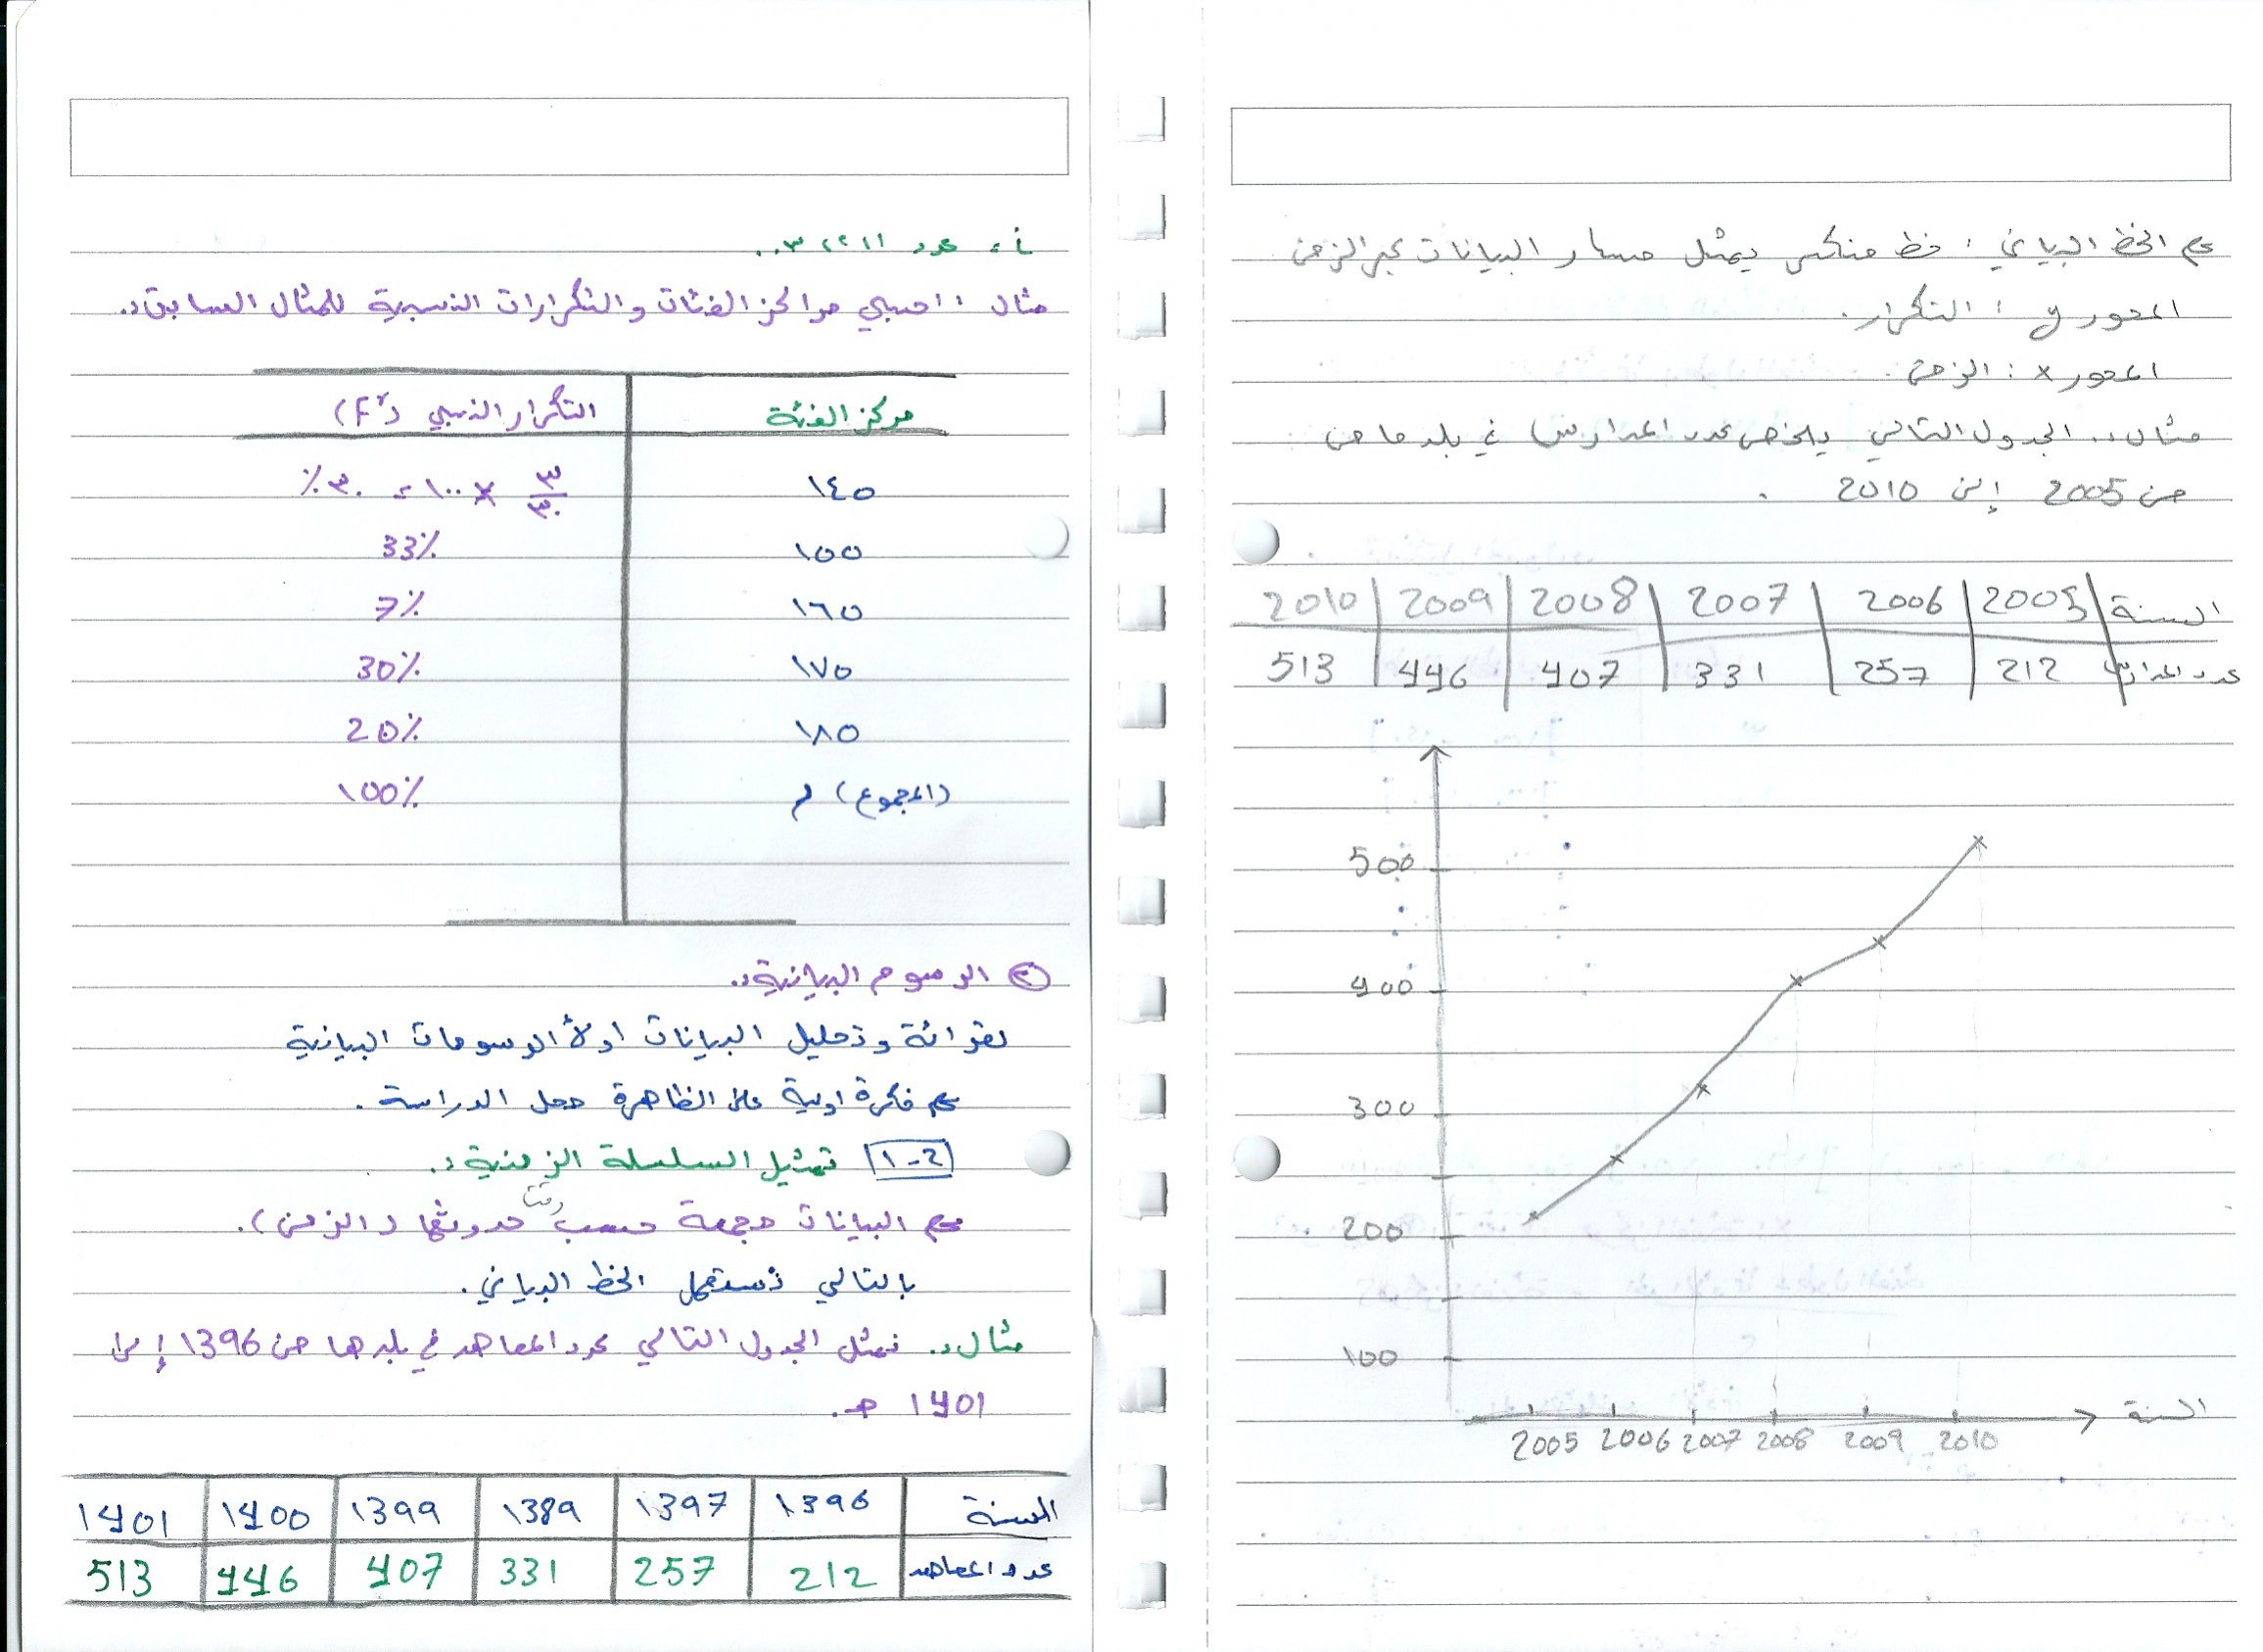 i = عدد ١، ٢، ٣ ..
مثال : احسبي مراكز الفئات والتكرارات النسبية للمثال السابق ..
مركز الفئة التكرار النسبي
١٤٥ ٣/٣٠ × ١٠٠ = ٣٠٪
١٥٥ 33٪
١٦٥ 7٪
١٧٥ 30٪
١٨٥ 20٪
(المجموع) م 100٪
② الرسوم البيانية ..
لقرائة وتحليل البيانات اولاً الرسومات البيانية
فكرة اولية على الظاهرة محل الدراسة .
1-2 تمثيل السلسلة الزمنية ..
البيانات مجمعة حسب وقت حدوثها (الزمن) .
بالتالي نستعمل الخط البياني .
مثال .. نمثل الجدول التالي عدد المعاهد في بلد ما من 1396 إلى
1401 هـ .
السنة 1396 1397 1389 1399 1400 1401
عدد المعاهد 212 257 331 407 446 513
الخط البياني : خط منكسر يمثل مسار البيانات عبر الزمن
المحور y : التكرار .
المحور x : الزمن .
مثال .. الجدول التالي يلخص عدد المدارس في بلد ما من
من 2005 إلى 2010 .
السنة 2005 2006 2007 2008 2009 2010
عدد المدارس 212 257 331 407 446 513
500
400
300
200
100
2005 2006 2007 2008 2009 2010 السنة